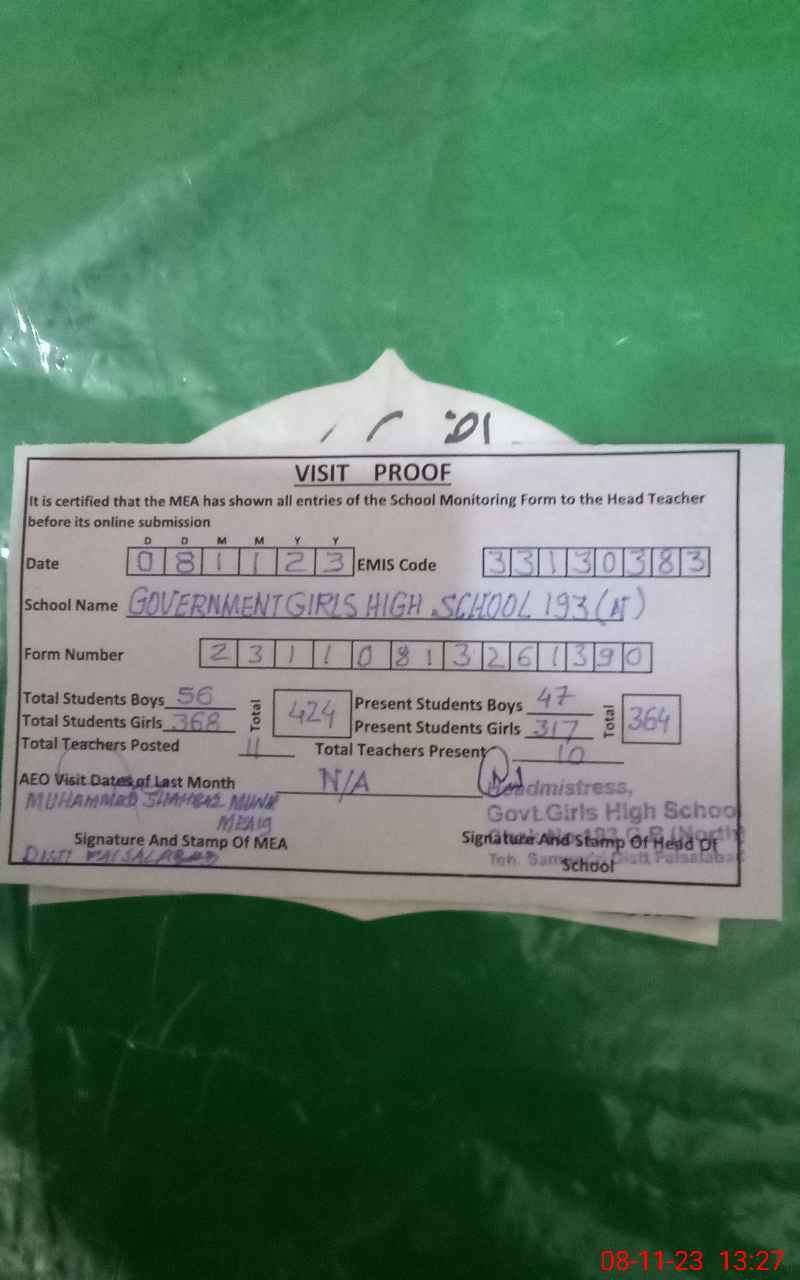 VISIT PROOF
It is certified that the MEA has shown all entries of the School Monitoring Form to the Head Teacher
before its online submission
D D M M Y Y
Date 0 8 1 1 2 3 EMIS Code 3 3 1 3 0 3 8 3
School Name GOVERNMENT GIRLS HIGH SCHOOL 193 (N)
Form Number 2 3 1 1 0 8 1 3 2 6 1 3 9 0
Total Students Boys 56 Total 424 Present Students Boys 47 Total 364
Total Students Girls 368 Present Students Girls 317
Total Teachers Posted 11 Total Teachers Present 10
AEO Visit Dates of Last Month N/A
Headmistress,
MUHAMMAD SHAHBAZ
Govt.Girls High School
MEA19
Signature And Stamp Of MEA Signature And Stamp Of Head Of
School
DISTT FAISALABAD
Teh. Distt Faisalabad
08-11-23 13:27